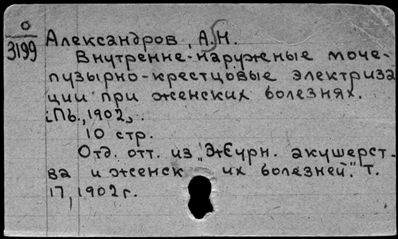 О
3199
Александров, А.Н.
Внутренне-наружные моче-
пузырно-крестцовые электриза
ции при женских болезнях.
Пб., 1902.
10 стр.
Отд. отт. из "ЖЕурн. акушерст-
ва и женск их болезней". т.
17, 1902 г.